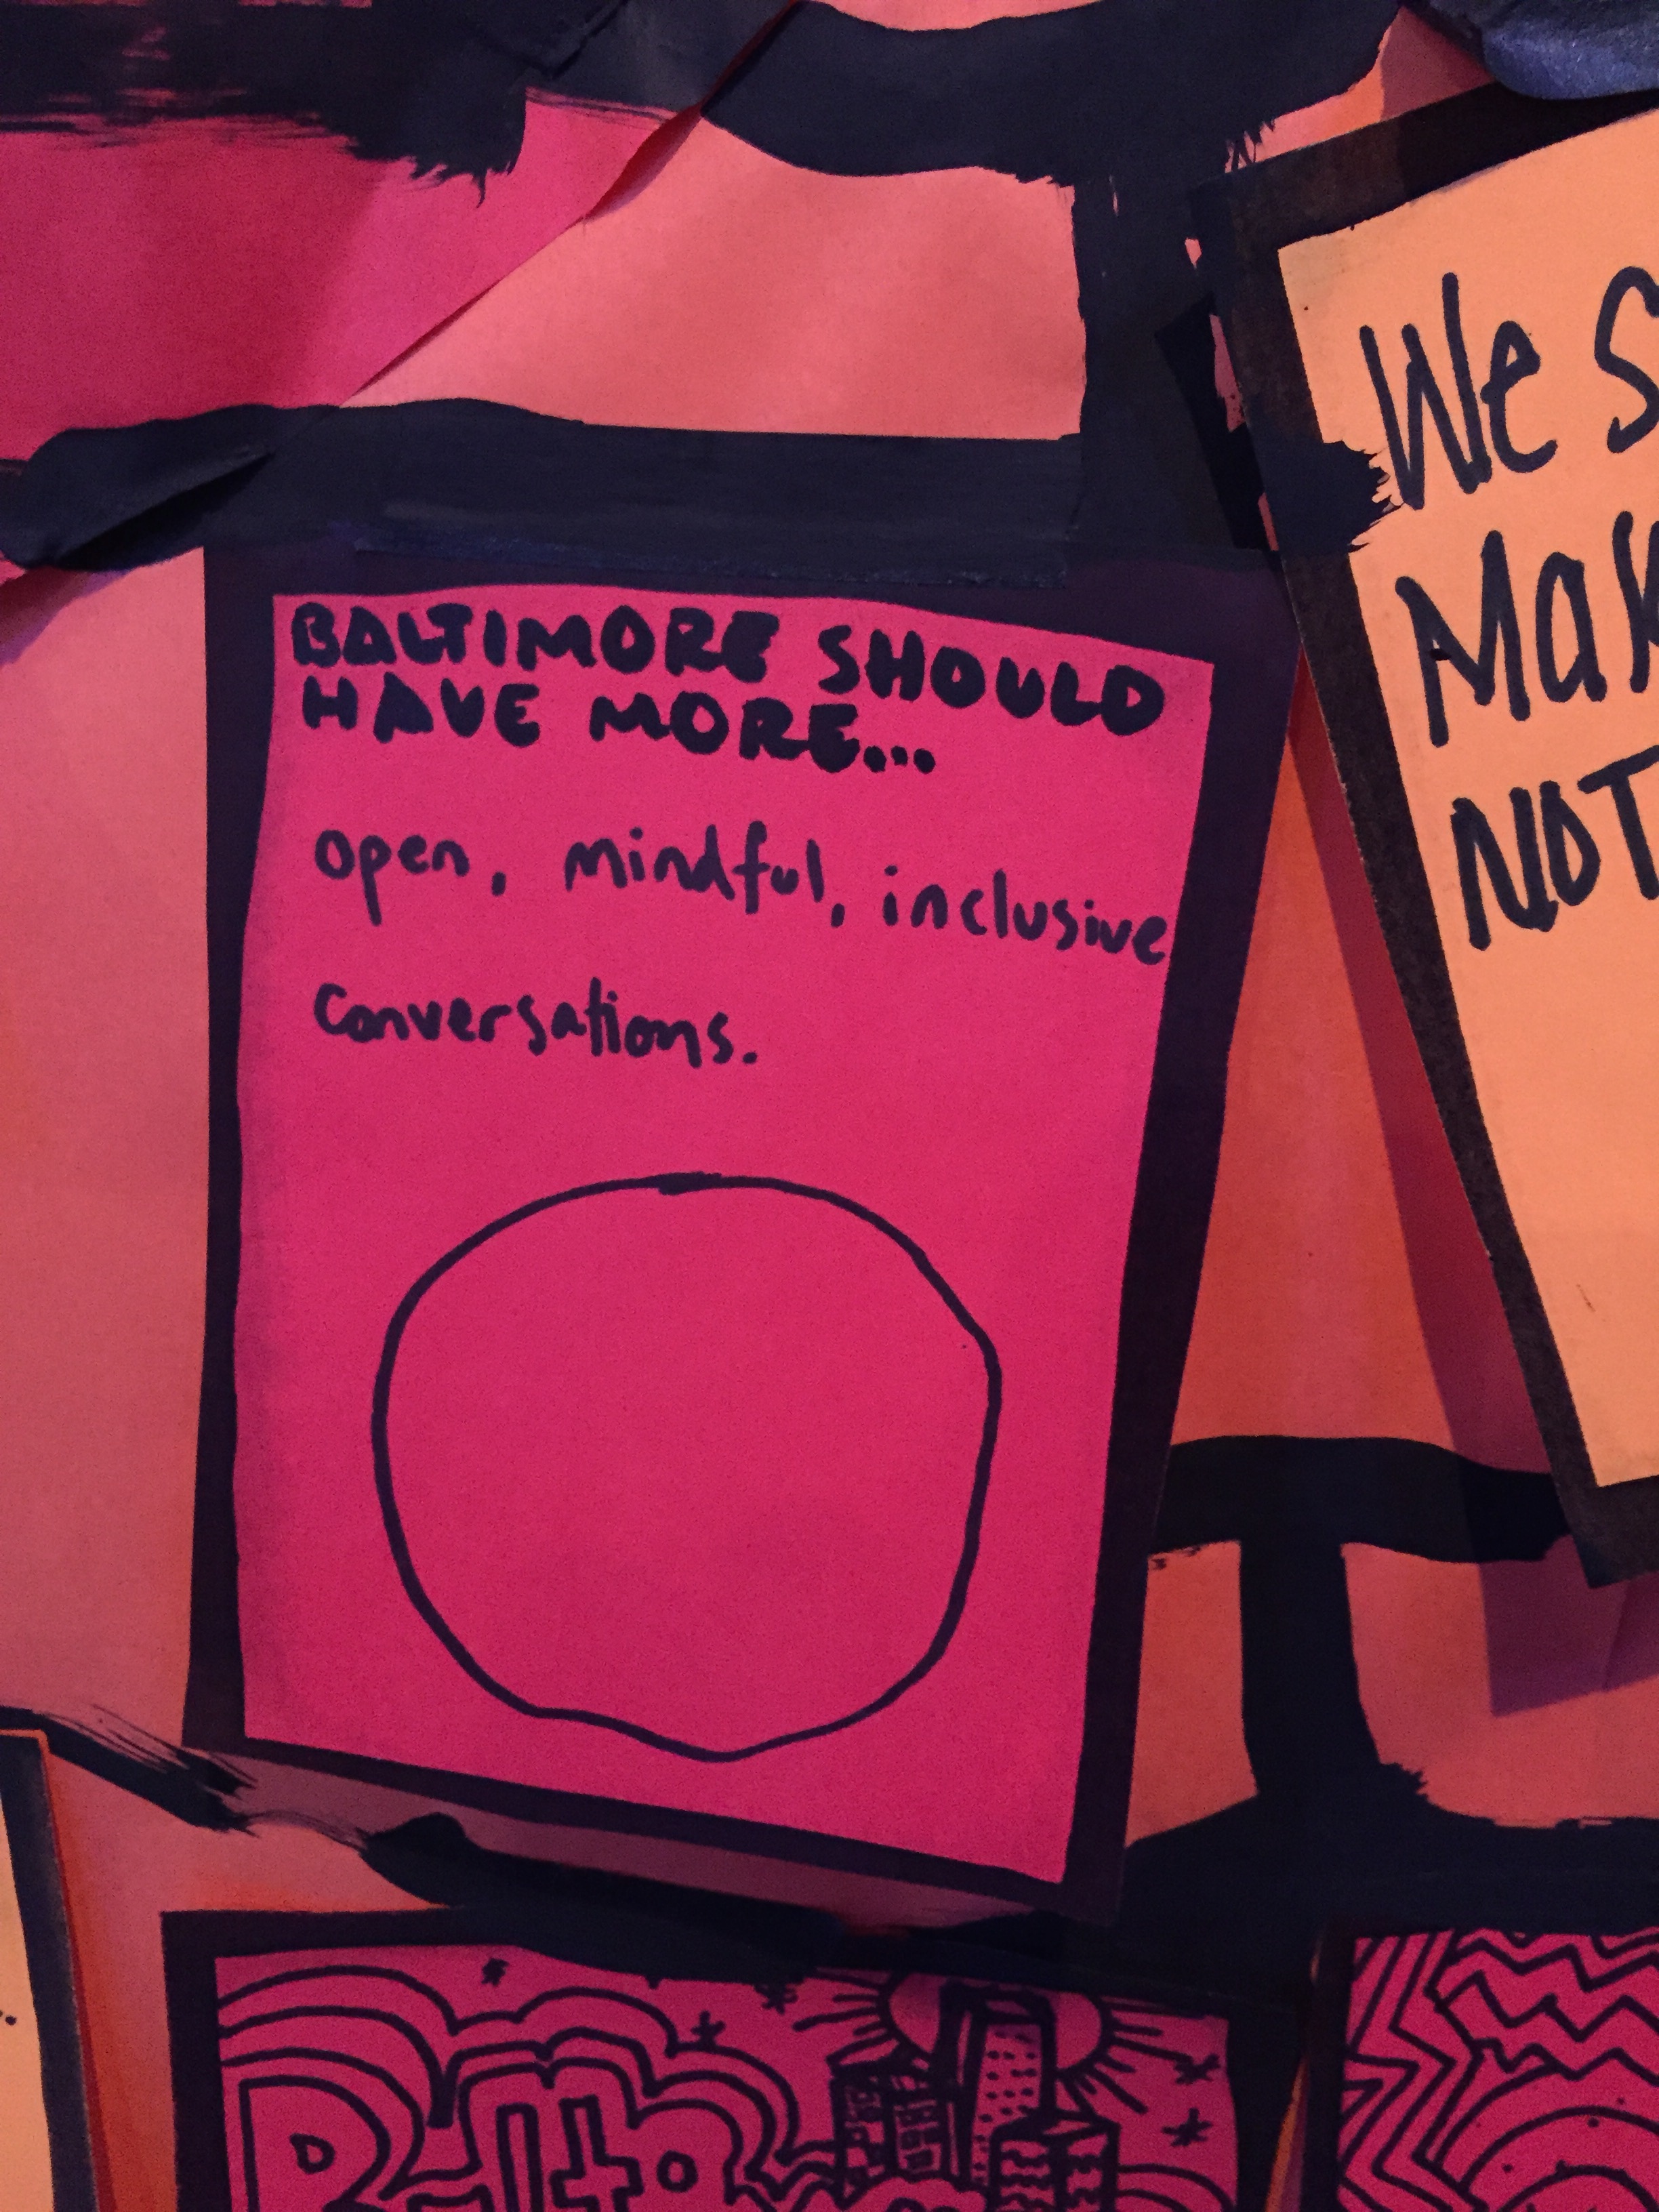 BALTIMORE SHOULD
HAVE MORE...
open, mindful, inclusive
Conversations.
We
NOT